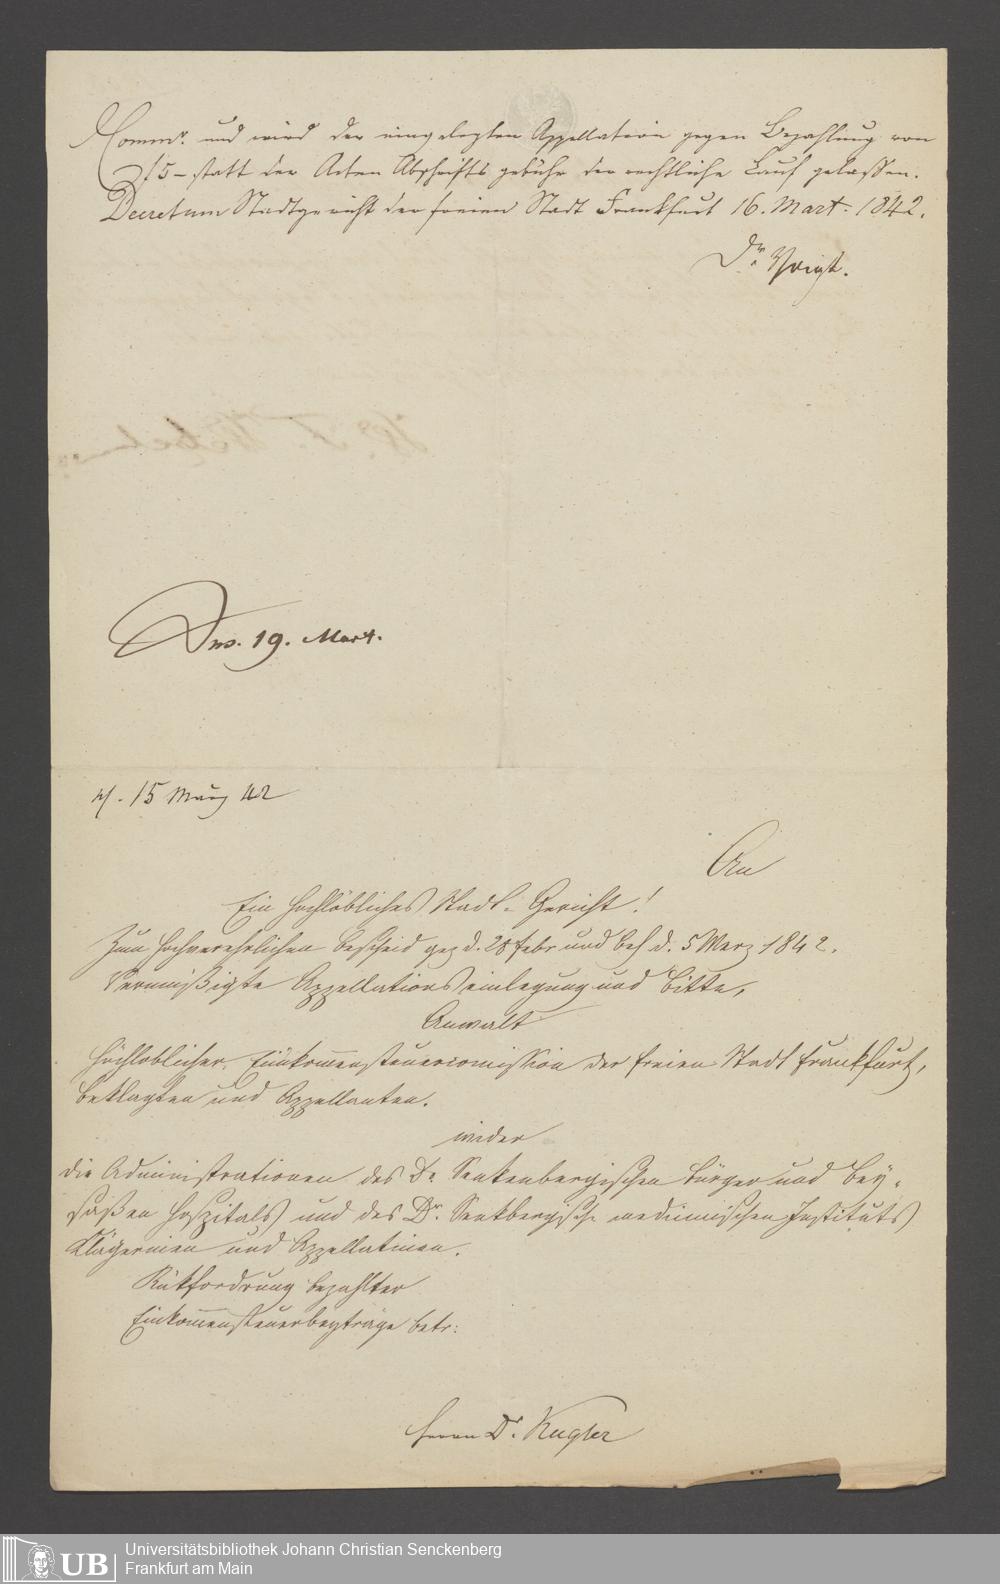 Commr. und wird der eingelegten Appellation gegen Bezahlung von
f 5 – statt der Acten Abschrifts gebühr der rechtliche Lauf gelassen.
Decretum Stadtgericht der freien Stadt Frankfurt 16. Mart. 1842.
Dr. Voigt.
Ins. 19. Mart.
15 März 42
An
Ein hochlöbliches Stadt-Gericht!
Zum hochverehrlichen Bescheid gez d. 28 Febr und beh d. 5 Merz 1842.
Appellationseinlegung und Bitte,
Anwalt
Hochlöblicher Einkommensteuercomission der freien Stadt Frankfurt,
Beklagten und Appellanten.
wider
die Administrationen des Dr Senkenbergischen Bürger und Bey-
saßen Hospitals und des Dr. Senkbergische medicinischen Instituts
Klägerinen und Appellatinen.
Rükfordrung bezahlter
Einkommensteuerbeyträge betr:
Herrn Dr. Kugler
UB
Universitätsbibliothek Johann Christian Senckenberg
Frankfurt am Main